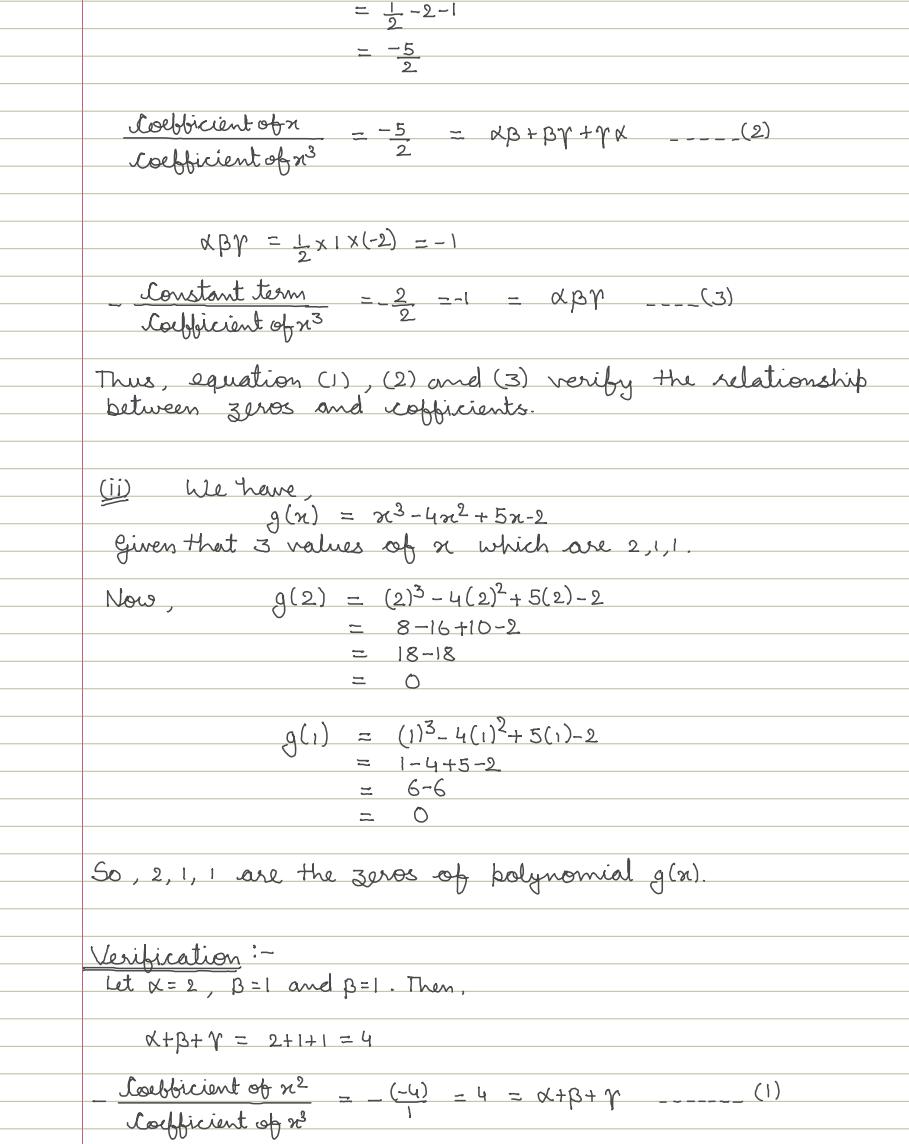 = 1/2 -2-1
= -5/2
Coefficient of x / Coefficient of x³ = -5/2 = αβ + βγ + γα -----(2)
αβγ = 1/2 × 1 × (-2) = -1
- Constant term / Coefficient of x³ = -2/2 = -1 = αβγ ----(3)
Thus, equation (1), (2) and (3) verify the relationship
between zeros and cofficients.
(ii) We have,
g(x) = x³ - 4x² + 5x - 2
Given that 3 values of x which are 2,1,1.
Now, g(2) = (2)³ - 4(2)² + 5(2) - 2
= 8-16+10-2
= 18-18
= 0
g(1) = (1)³ - 4(1)² + 5(1) - 2
= 1-4+5-2
= 6-6
= 0
So, 2, 1, 1 are the zeros of polynomial g(x).
Verification :-
Let α = 2, β = 1 and β = 1. Then,
α+β+γ = 2+1+1 = 4
- Coefficient of x² / Coefficient of x³ = - (-4)/1 = 4 = α+β+γ ------- (1)